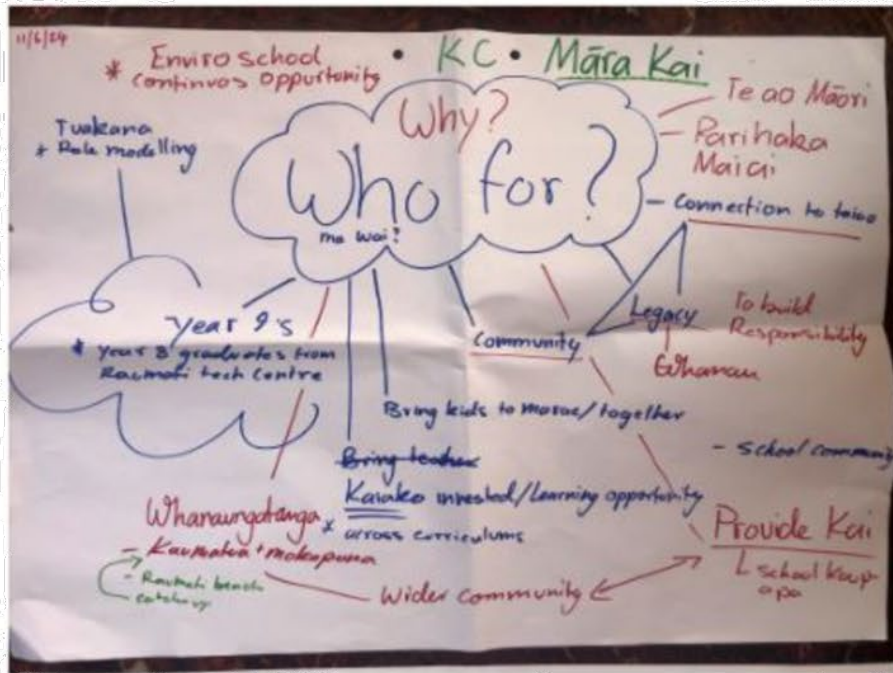 11/6/24
* Enviroschool
continuos oppurtunity
• KC • Māra Kai
Tuakana
+ Role modelling
Why?
Who for?
ma wai?
Te ao Māori
Parihaka
- Connection to taiao
Year 9's
* Year 8 graduates from
Raumati tech Centre
Community
Legacy
To build
Responsibility
Whanau
Bring kids to marae/together
Bring teacher
Kaiako invested/Learning opportunity
* across curriculums
- School community
Whanaungatanga
- Kaumatua + mokopuna
- Raumati
Wider community
Provide Kai
school kaup-
apa